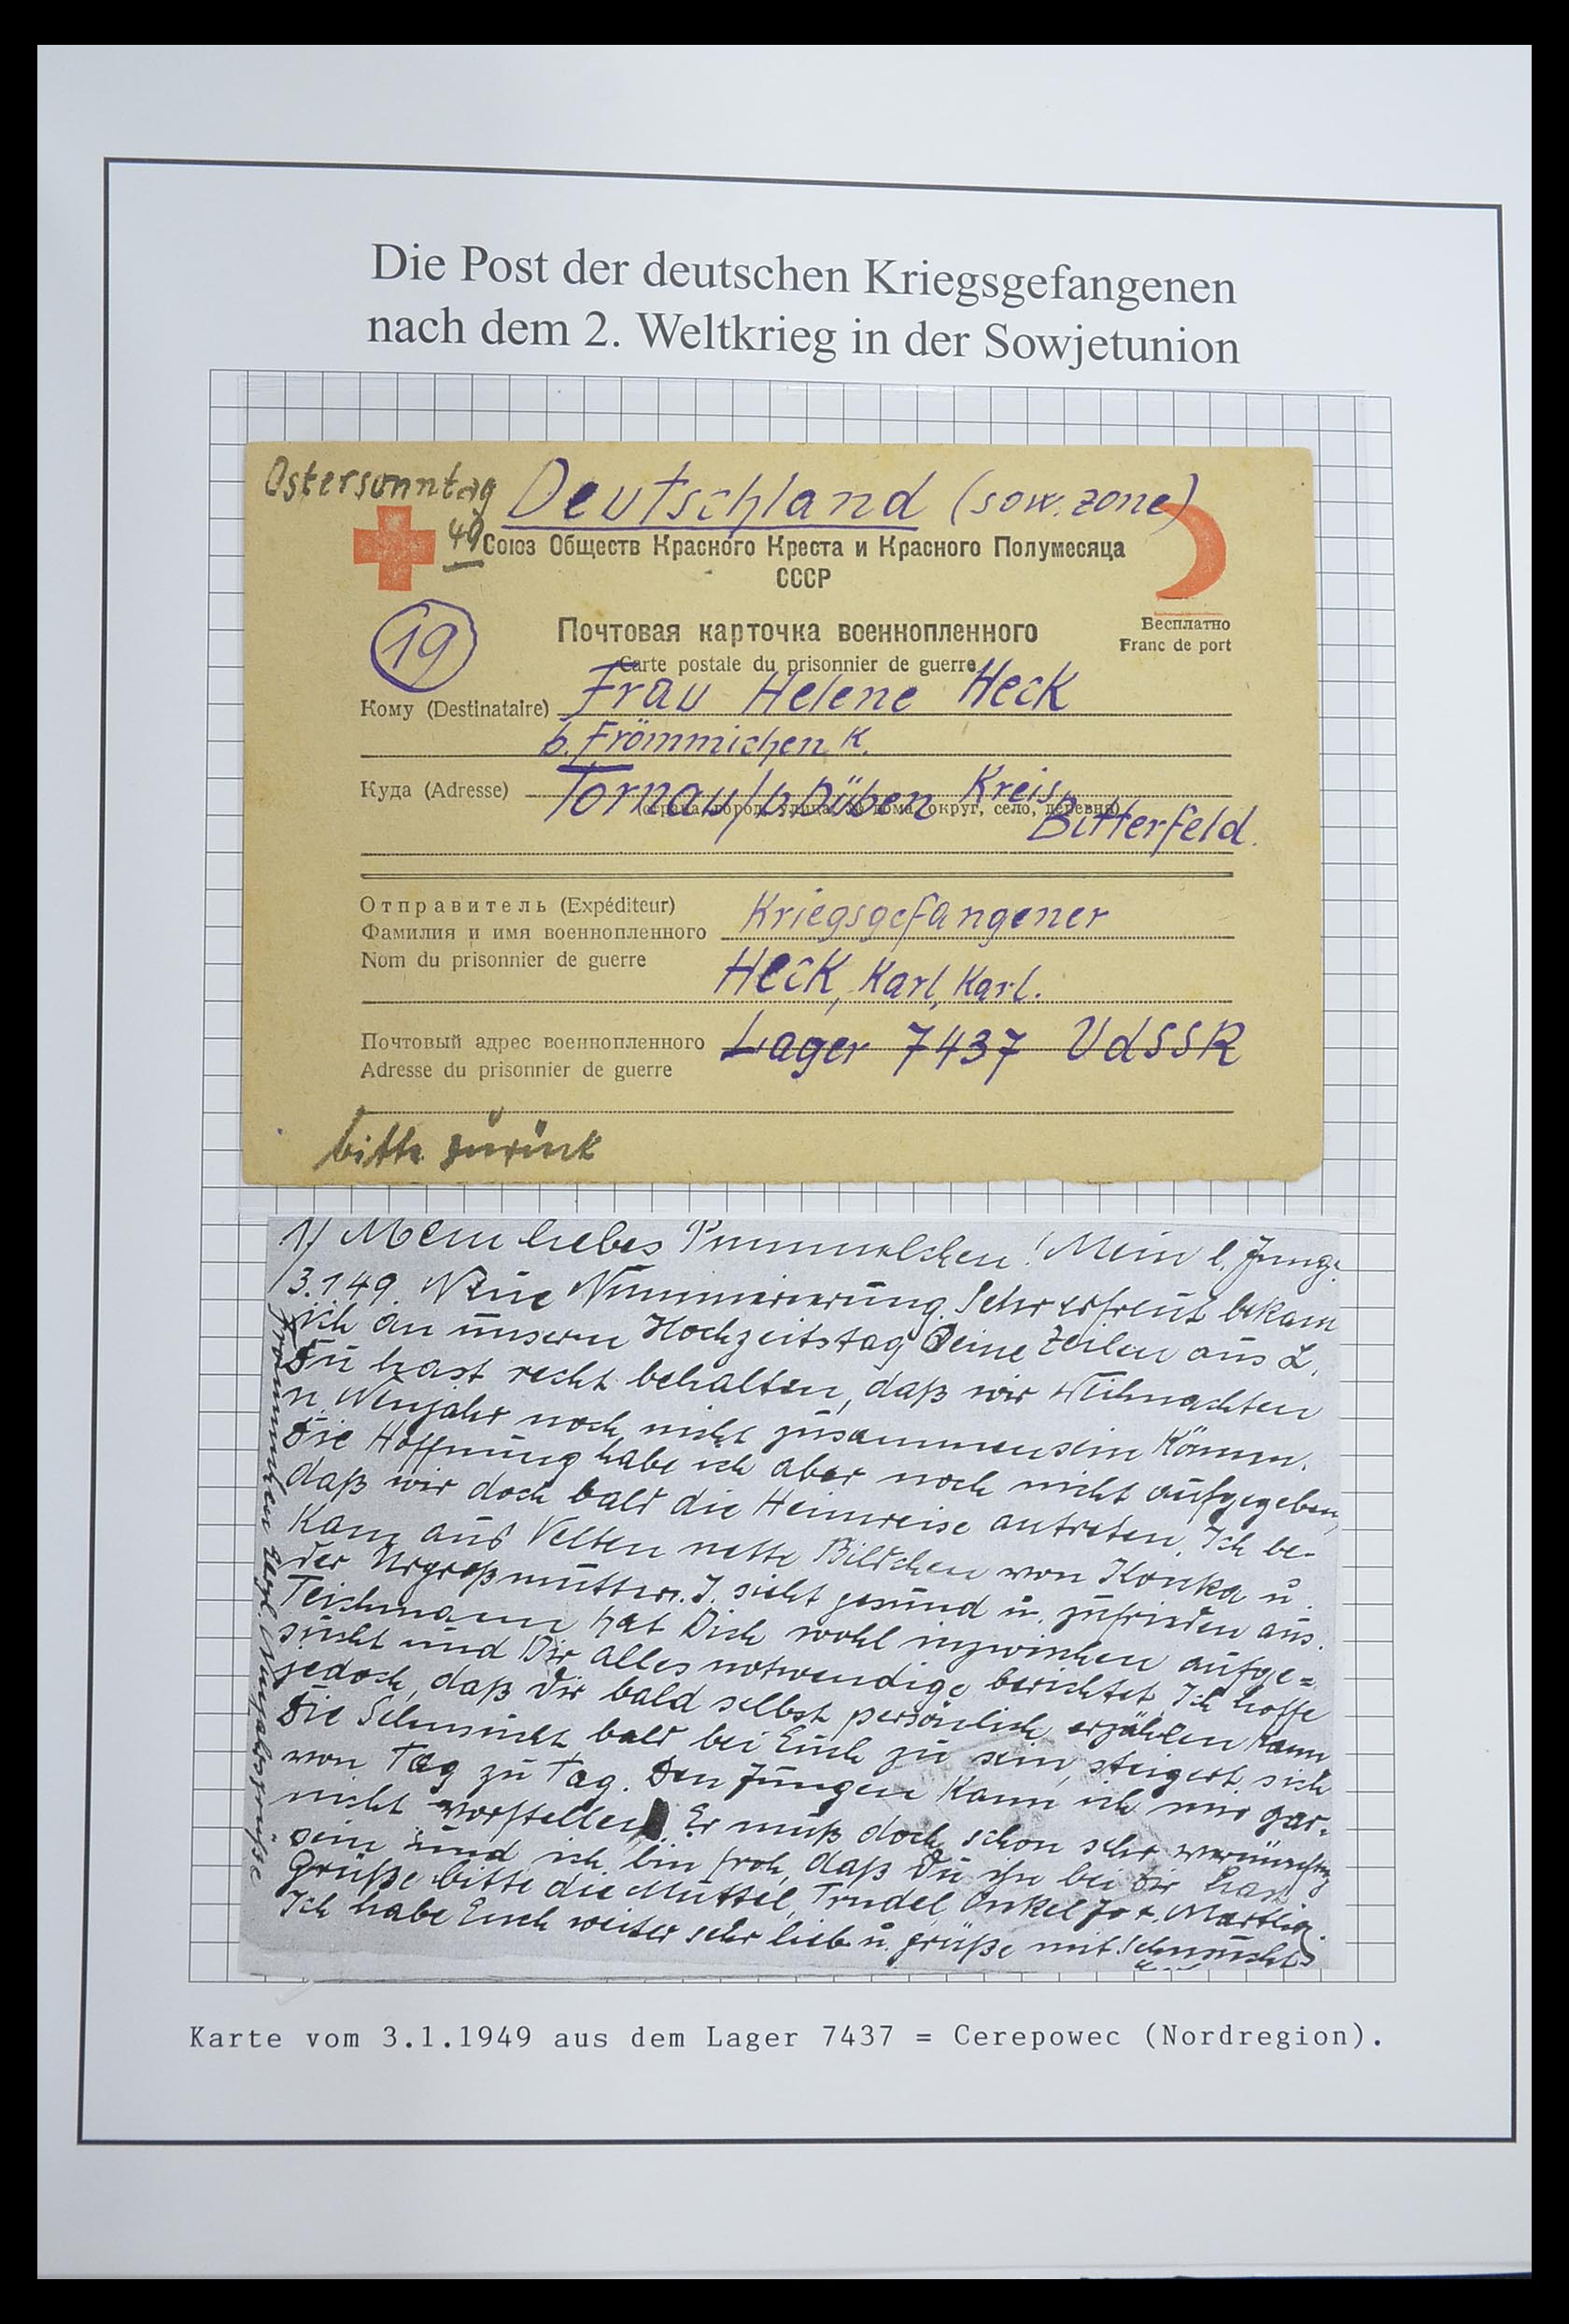 Die Post der deutschen Kriegsgefangenen
nach dem 2. Weltkrieg in der Sowjetunion
Ostersonntag
49
Deutschland (sow. zone)
Союз Обществ Красного Креста и Красного Полумесяца
СССР
19
Почтовая карточка военнопленного
Carte postale du prisonnier de guerre
Бесплатно
Franc de port
Кому (Destinataire) Frau Helene Heck
b. Frömmichen K.
Куда (Adresse) Tornau/b. Düben Kreis
(страна, город, улица, № дома, округ, село, деревня)
Bitterfeld.
Отправитель (Expéditeur)
Фамилия и имя военнопленного
Nom du prisonnier de guerre
Kriegsgefangener
Heck, Karl, Karl.
Почтовый адрес военнопленного
Adresse du prisonnier de guerre
Lager 7437 UdSSR
bitte zurück
1/ Mein liebes Pummelchen! Mein l. Junge!
3.1.49. Neue Nummerierung. Sehr erfreut bekam
ich an unserm Hochzeitstag Deine Zeilen aus L.
Du hast recht behalten, daß wir Weihnachten
u. Neujahr noch nicht zusammensein können.
Die Hoffnung habe ich aber noch nicht aufgegeben,
daß wir doch bald die Heimreise antreten. Ich be-
kam aus Velten nette Bildchen von u.
der Urgroßmutter. J. sieht gesund u. zufrieden aus.
Teichmann hat Dich wohl inzwischen aufge=
sucht und Dir alles notwendige berichtet. Ich hoffe
jedoch, daß Dir bald selbst persönlich erzählen kann
Die Sehnsucht bald bei Euch zu sein, steigert sich
von Tag zu Tag. Den Jungen kann ich mir gar-
nicht vorstellen. Er muß doch schon sehr vernünftig
sein und ich bin froh, daß Du ihn bei Dir hast
Grüße bitte die Muttel, Trudel, Onkel
Ich habe Euch weiter sehr lieb u. grüße mit Sehnsucht
Frömmichen herzl. Neujahrsgrüße
Karte vom 3.1.1949 aus dem Lager 7437 = Cerepowec (Nordregion).